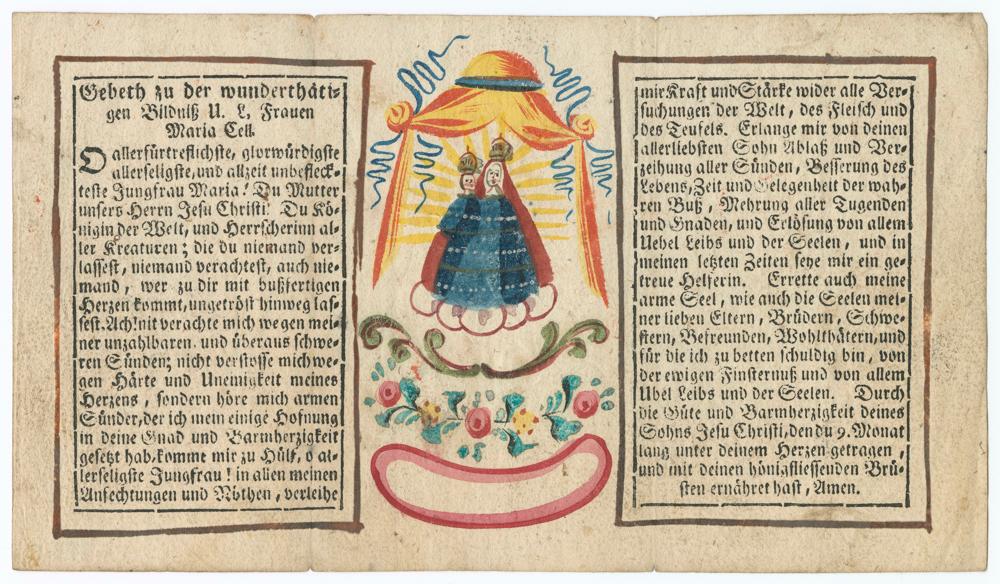 Gebeth zu der wunderthäti-
gen Bildniß U. L. Frauen
Maria Cell.
O allerfürtreflichste, glorwürdigste
allerseligste, und allzeit unbefleck-
teste Jungfrau Maria! Du Mutter
unsers Herrn Jesu Christi! Du Kö-
nigin der Welt, und Herrscherinn al-
ler Kreaturen; die du niemand ver-
lassest, niemand verachtest, auch nie-
mand, wer zu dir mit bußfertigen
Herzen kommt, ungetröst hinweg las-
sest. Ach! nit verachte mich wegen mei-
ner unzahlbaren. und überaus schwe-
ren Sünden; nicht verstosse mich we-
gen Härte und Uneinigkeit meines
Herzens, sondern höre mich armen
Sünder, der ich mein einige Hofnung
in deine Gnad und Barmherzigkeit
gesetzt hab, kommt mir zu Hülf, o al-
lerseligste Jungfrau! in allen meinen
Anfechtungen und Nöthen, verleihe
mir Kraft und Stärke wider alle Ver-
suchungen der Welt, des Fleisch und
des Teufels. Erlange mir von deinen
allerliebsten Sohn Ablaß und Ver-
zeihung aller Sünden, Besserung des
Lebens, Zeit und Gelegenheit der wah-
ren Buß, Mehrung aller Tugenden
und Gnaden, und Erlösung von allem
Uebel Leibs und der Seelen, und in
meinen letzten Zeiten seye mir ein ge-
treue Helferin. Errette auch meine
arme Seel, wie auch die Seelen mei-
ner lieben Eltern, Brüdern, Schwe-
stern, Befreunden, Wohlthätern, und
für die ich zu betten schuldig bin, von
der ewigen Finsternuß und von allem
Ubel Leibs und der Seelen. Durch
die Güte und Barmherzigkeit deines
Sohns Jesu Christi, den du 9. Monat
lang unter deinem Herzen getragen,
und mit deinen hönigfliessenden Brü-
sten ernähret hast, Amen.